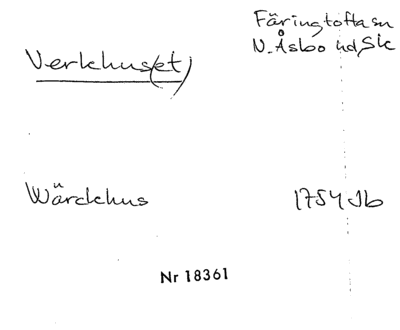 Färingtofta sn
Verkhus(et)
N. Åsbo hd, Sk
Wärckhus 1754 Jb
Nr 18361